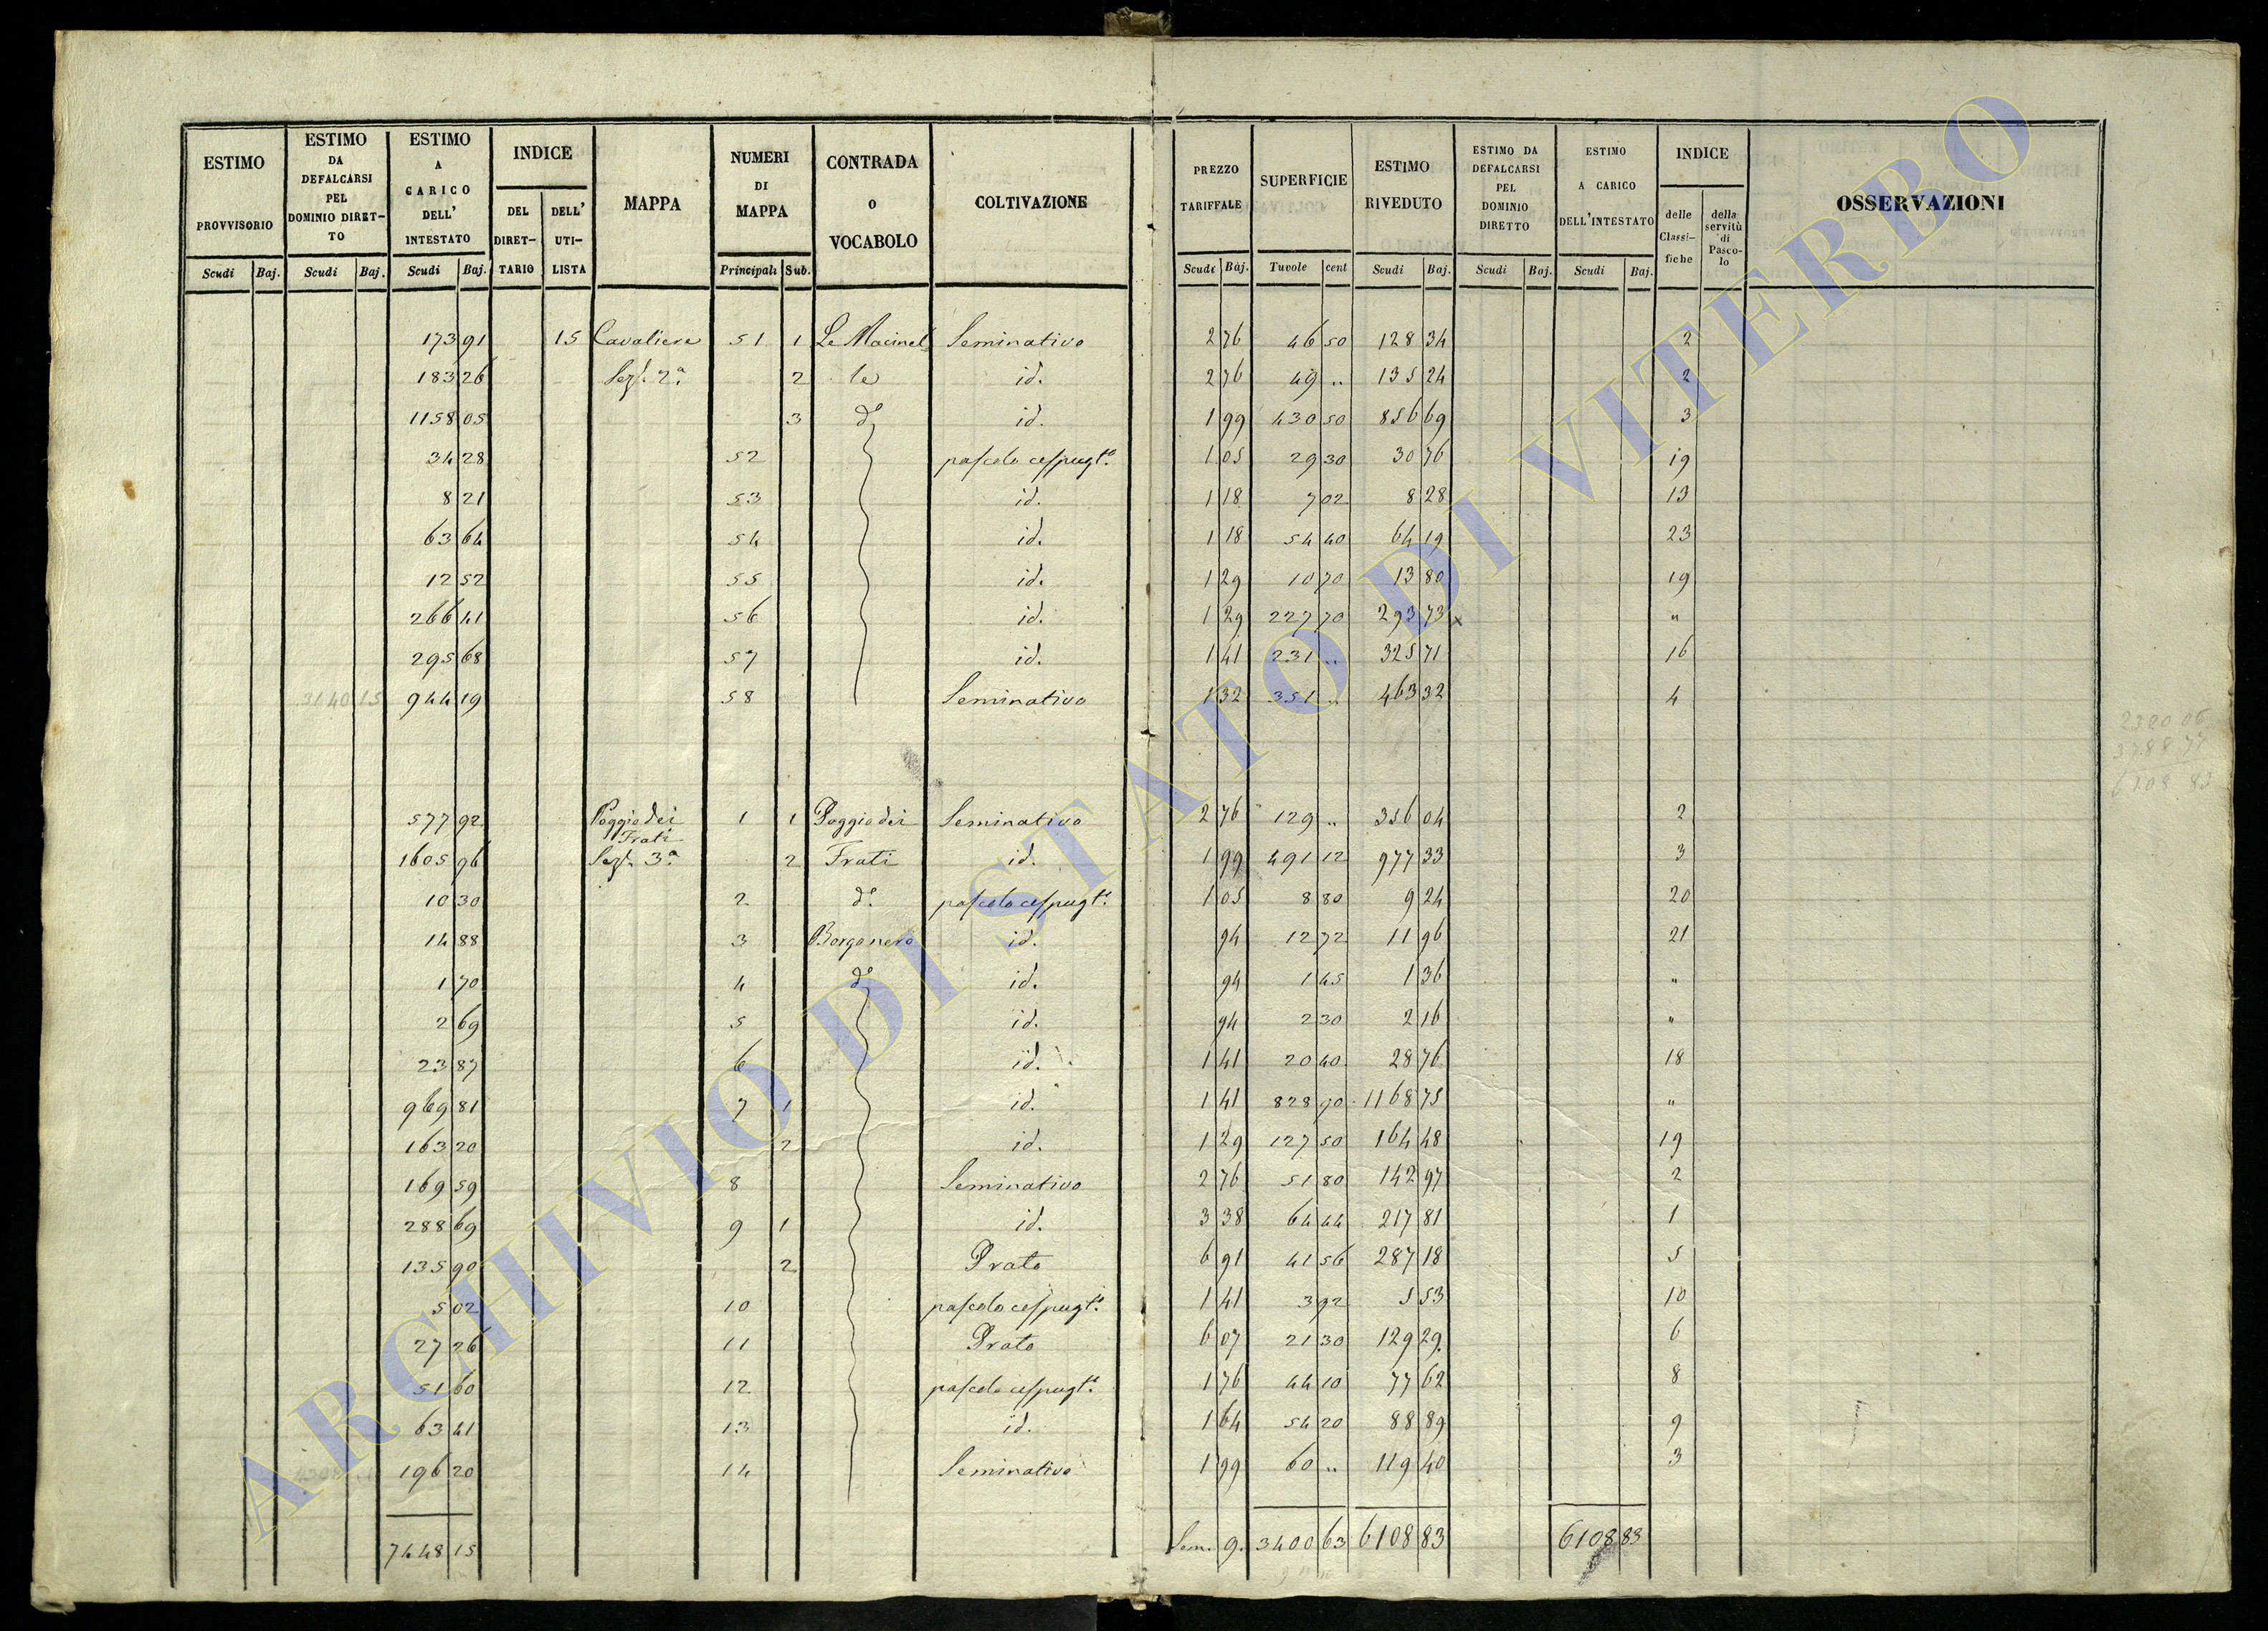 ESTIMO PROVVISORIO Scudi Baj. ESTIMO DA DEFALCARSI PEL DOMINIO DIRET-TO Scudi Baj. ESTIMO A CARICO DELL' INTESTATO Scudi Baj. INDICE DEL DIRET-TARIO DELL' UTI-LISTA MAPPA NUMERI DI MAPPA Principali Sub. CONTRADA O VOCABOLO COLTIVAZIONE PREZZO TARIFFALE Scudi Baj. SUPERFICIE Tavole cent ESTIMO RIVEDUTO Scudi Baj. ESTIMO DA DEFALCARSI PEL DOMINIO DIRETTO Scudi Baj. ESTIMO A CARICO DELL'INTESTATO Scudi Baj. INDICE delle Classi-fiche della servitù di Pasco-lo OSSERVAZIONI
173 91 15 Cavaliere 51 1 Le Macinel Seminativo 2 76 46 50 128 34 2
183 26 Sez. 2ª 2 le id. 2 76 49 .. 135 24 2
1158 05 3 do id. 1 99 430 50 856 69 3
34 28 52 pascolo cespugto. 1 05 29 30 30 76 19
8 21 53 id. 1 18 7 02 8 28 13
63 64 54 id. 1 18 54 40 64 19 23
12 52 55 id. 1 29 10 70 13 80 19
266 41 56 id. 1 29 227 70 293 73 x "
295 68 57 id. 1 41 231 .. 325 71 16
3140 15 944 19 58 Seminativo 1 32 351 .. 463 32 4
2320 06
3788 77
6108 83
577 92 Poggio dei Frati 1 1 Poggio dei Seminativo 2 76 129 .. 356 04 2
1605 96 Sez. 3ª 2 Frati id. 1 99 491 12 977 33 3
10 30 2 do. pascolo cespugto. 1 05 8 80 9 24 20
14 88 3 Borgonero id. 94 12 72 11 96 21
1 70 4 do id. 94 1 45 1 36 "
2 69 5 id. 94 2 30 2 16 "
23 87 6 id. 1 41 20 40 28 76 18
969 81 7 1 id. 1 41 828 90 1168 75 "
163 20 2 id. 1 29 127 50 164 48 19
169 59 8 Seminativo 2 76 51 80 142 97 2
288 69 9 1 id. 3 38 64 44 217 81 1
135 90 2 Prato 6 91 41 56 287 18 5
5 02 10 pascolo cespugto. 1 41 3 92 5 53 10
27 26 11 Prato 6 07 21 30 129 29 6
51 60 12 pascolo cespugto. 1 76 44 10 77 62 8
63 41 13 id. 1 64 54 20 88 89 9
196 20 14 Seminativo 1 99 60 .. 119 40 3
7448 15 3400 63 6108 83 6108 83
ARCHIVIO DI STATO DI VITERBO